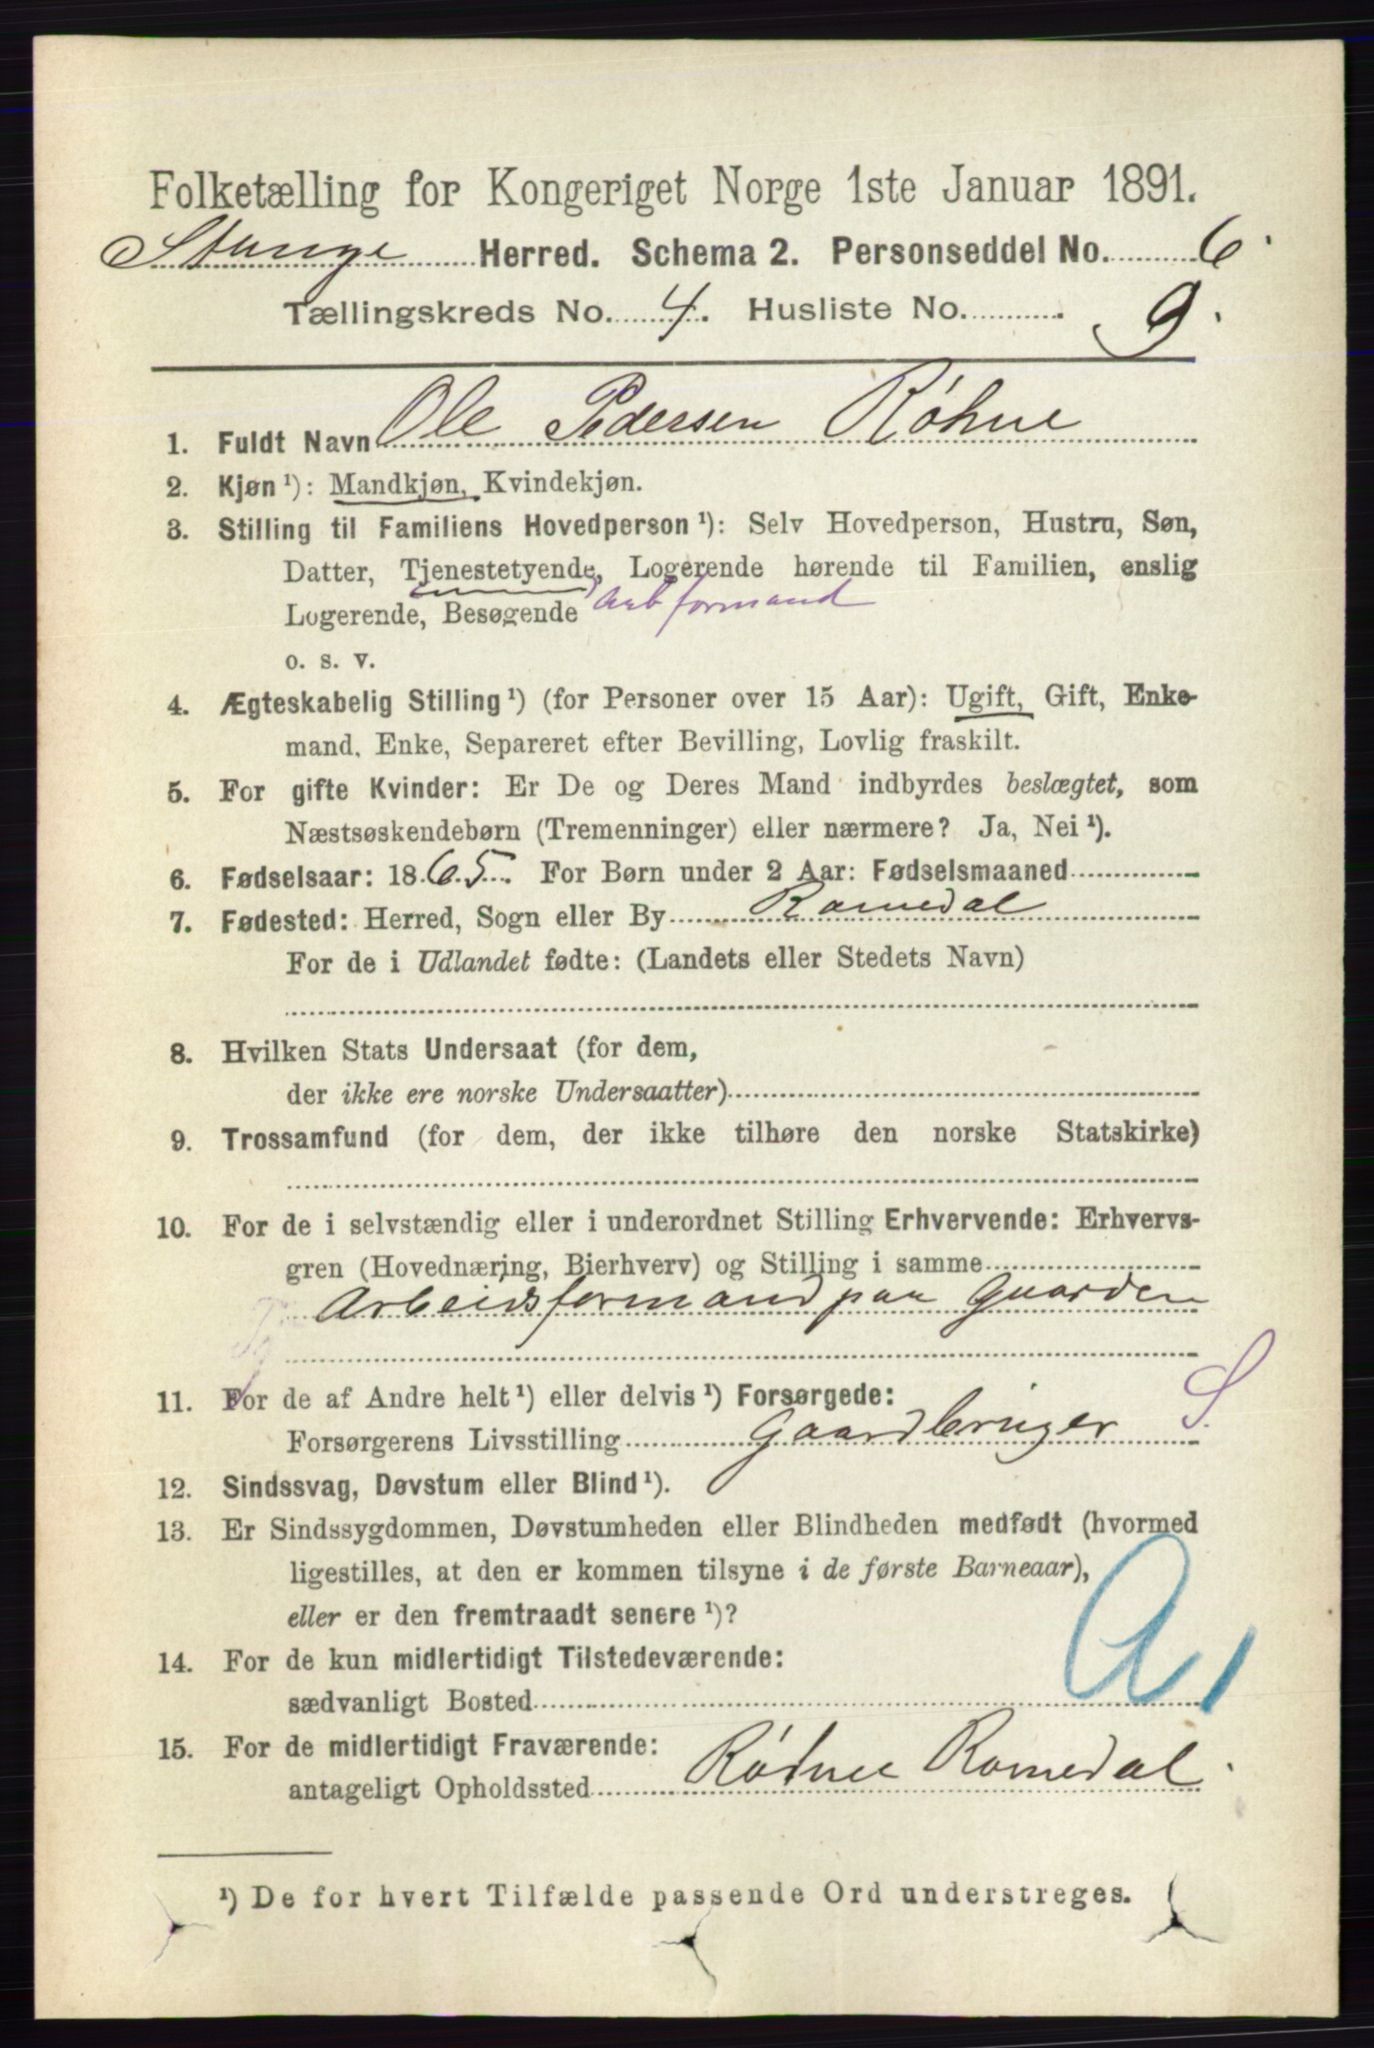 Folketælling for Kongeriget Norge 1ste Januar 1891.
Stange Herred. Schema 2. Personseddel No. 6.
Tællingskreds No. 4. Husliste No. 9.
1. Fuldt Navn Ole Pedersen Røhne
2. Kjøn¹): Mandkjøn, Kvindekjøn.
3. Stilling til Familiens Hovedperson¹): Selv Hovedperson, Hustru, Søn,
Datter, Tjenestetyende, Logerende hørende til Familien, enslig
Logerende, Besøgende arb formand
o. s. v.
4. Ægteskabelig Stilling¹) (for Personer over 15 Aar): Ugift, Gift, Enke-
mand, Enke, Separeret efter Bevilling, Lovlig fraskilt.
5. For gifte Kvinder: Er De og Deres Mand indbyrdes beslægtet, som
Næstsøskendebørn (Tremenninger) eller nærmere? Ja, Nei¹).
6. Fødselsaar: 1865. For Børn under 2 Aar: Fødselsmaaned
7. Fødested: Herred, Sogn eller By Romedal
For de i Udlandet fødte: (Landets eller Stedets Navn)
8. Hvilken Stats Undersaat (for dem,
der ikke ere norske Undersaatter)
9. Trossamfund (for dem, der ikke tilhøre den norske Statskirke)
10. For de i selvstændig eller i underordnet Stilling Erhvervende: Erhvervs-
gren (Hovednæring, Bierhverv) og Stilling i samme
Arbeidsformand paa Gaarden
11. For de af Andre helt¹) eller delvis¹) Forsørgede: S.
Forsørgerens Livsstilling Gaardbruger
12. Sindssvag, Døvstum eller Blind¹).
13. Er Sindssygdommen, Døvstumheden eller Blindheden medfødt (hvormed
ligestilles, at den er kommen tilsyne i de første Barneaar),
eller er den fremtraadt senere¹)?
14. For de kun midlertidigt Tilstedeværende:
sædvanligt Bosted
15. For de midlertidigt Fraværende:
antageligt Opholdssted Romedal.
¹) De for hvert Tilfælde passende Ord understreges.